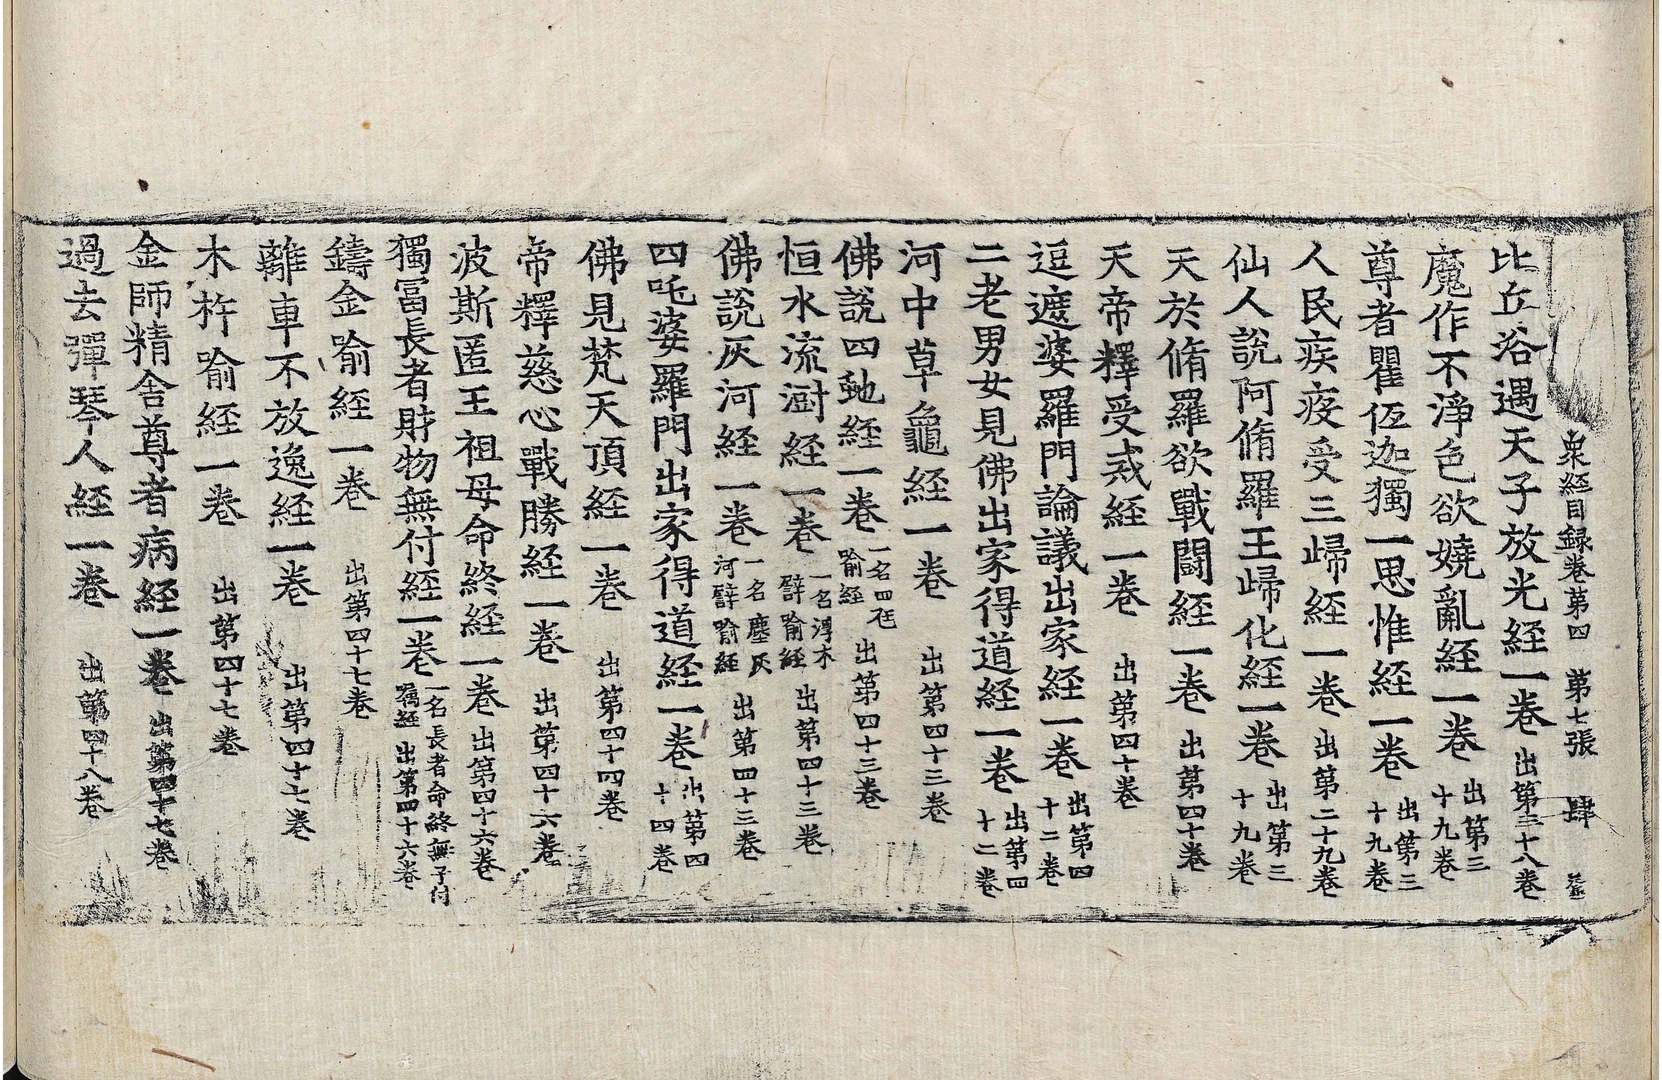 衆經目録卷第四　第七張　肆
比丘浴遇天子放光経一卷 出第三十八卷
魔作不淨色欲嬈亂経一卷 出第三十九卷
尊者瞿低迦獨一思惟経一卷 出第三十九卷
人民疾疫受三歸経一卷 出第二十九卷
仙人說阿脩羅王歸化経一卷 出第三十九卷
天於脩羅欲戰鬪経一卷 出第四十卷
天帝釋受戒経一卷 出第四十卷
逗遮婆羅門論議出家経一卷 出第四十二卷
二老男女見佛出家得道経一卷 出第四十二卷
河中草龜経一卷 出第四十三卷
佛說四虵経一卷 一名四虵喻経 出第四十三卷
恒水流澍経一卷 一名浮木譬喻経 出第四十三卷
佛說灰河経一卷 一名塵灰河譬喻経 出第四十三卷
四吒婆羅門出家得道経一卷 出第四十四卷
佛見梵天頂経一卷 出第四十四卷
帝釋慈心戰勝経一卷 出第四十六卷
波斯匿王祖母命終経一卷 出第四十六卷
獨冨長者財物無付経一卷 一名長者命終無子付囑経 出第四十六卷
鑄金喻経一卷 出第四十七卷
離車不放逸経一卷 出第四十七卷
木杵喻経一卷 出第四十七卷
金師精舍尊者病経一卷 出第四十七卷
過去彈琴人経一卷 出第四十八卷